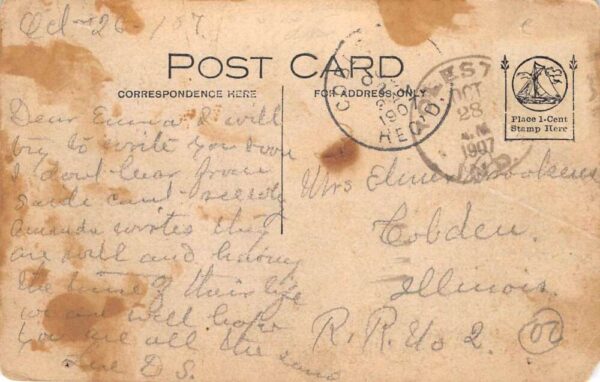 Oct 26 - 07
POST CARD
CORRESPONDENCE HERE
FOR ADDRESS ONLY
Place 1-Cent
Stamp Here
1907
REC'D.
WEST
OCT
28
A.M.
1907
Dear Emma I will
try to write you soon
I dont hear from
Sade cant
Amanda writes they
are well and having
the time of their life
we are well hope
you are all the same
D S.
Mrs Elmer
Cobden.
Illinois.
R. R. No 2.